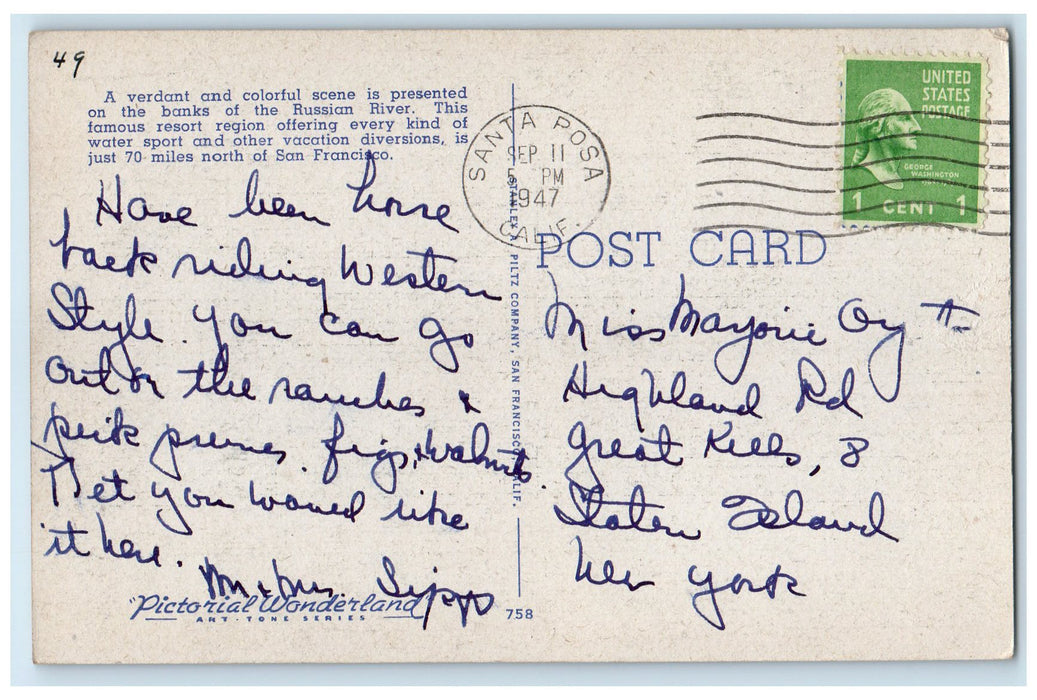 49
A verdant and colorful scene is presented
on the banks of the Russian River. This
famous resort region offering every kind of
water sport and other vacation diversions, is
just 70 miles north of San Francisco.
Have been horse
back riding Western
Style. You can go
out on the ranches &
pick prunes, figs, & walnuts.
I bet you would like
it here.
Mr & Mrs Sipp
"Pictorial Wonderland"
ART-TONE SERIES
758
STANLEY A. PILTZ COMPANY, SAN FRANCISCO, CALIF.
SANTA ROSA
SEP 11
5 PM
1947
CALIF.
UNITED
STATES
POSTAGE
GEORGE
WASHINGTON
1 CENT 1
POST CARD
Miss Marjorie
Highland Rd
Great Kills, 8
Staten Island
New York